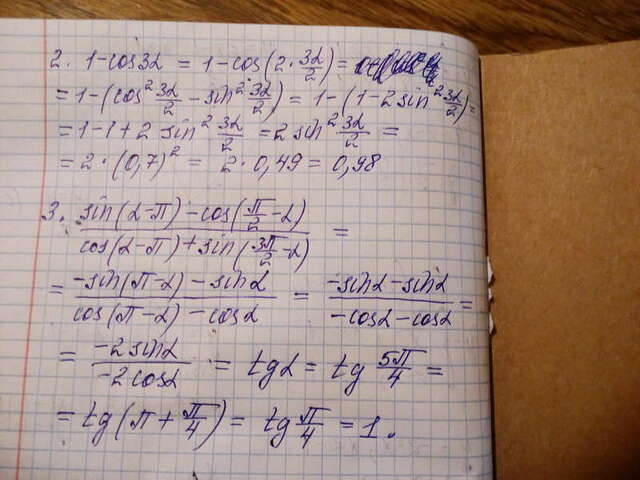 2. 1-cos3α = 1-cos(2·3α/2) =
= 1-(cos²3α/2 - sin²3α/2) = 1-(1-2sin²3α/2) =
= 1-1+2 sin²3α/2 = 2sin²3α/2 =
= 2·(0,7)² = 2·0,49 = 0,98
3. (sin(α-π) - cos(π/2-α))/(cos(α-π) + sin(3π/2-α)) =
= (-sin(π-α) - sinα)/(cos(π-α) - cosα) = (-sinα - sinα)/(-cosα - cosα) =
= (-2sinα)/(-2cosα) = tgα = tg 5π/4 =
= tg(π + π/4) = tg π/4 = 1.